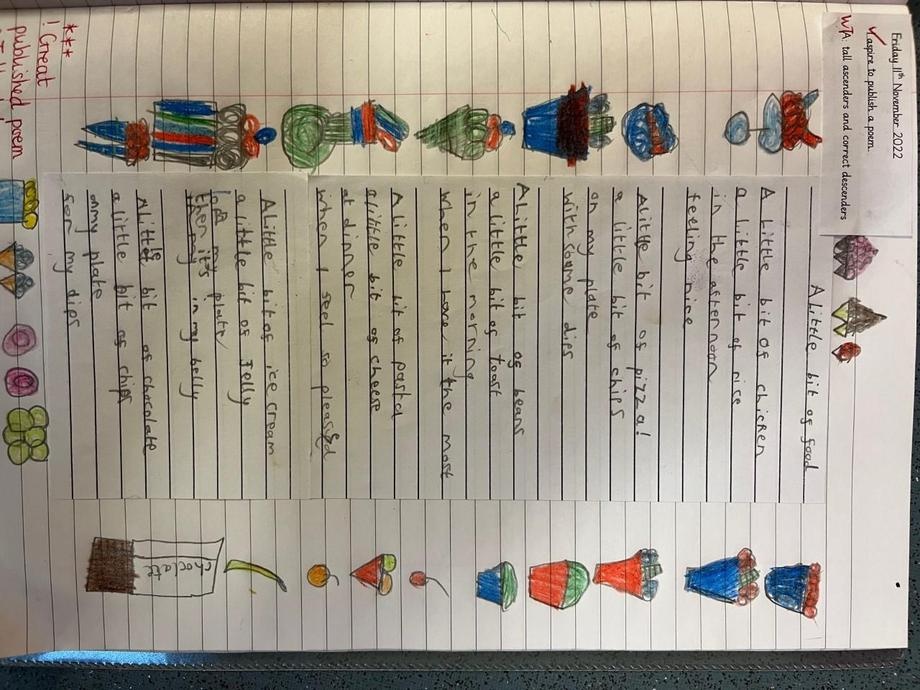 Friday 11th November 2022
aspire to publish a poem.
WTA: tall ascenders and correct descenders
A little bit of food
A little bit of chicken
a little bit of rice
in the afternoon
feeling nice
A little bit of pizza!
a little bit of chips
on my plate
with some dips
A little bit of beans
a little bit of toast
in the morning
When I have it the most
A little bit of pasta
a little bit of cheese
at dinner
when I feel so pleased
A little bit of ice cream
a little bit of Jelly
plate
then it's in my belly
A little bit of chocolate
a little bit of chips
on my plate
for my dips
choclate
***
! Great
published poem